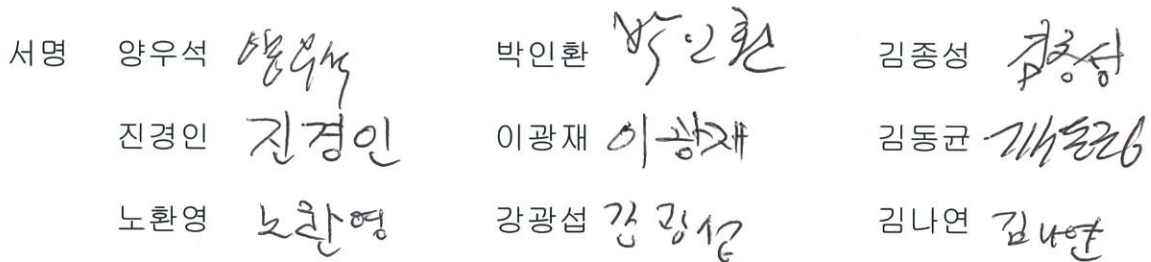 서명 양우석 양우석 박인환 박인환 김종성 김종성
진경인 진경인 이광재 이광재 김동균
노환영 노환영 강광섭 강광섭 김나연 김나연